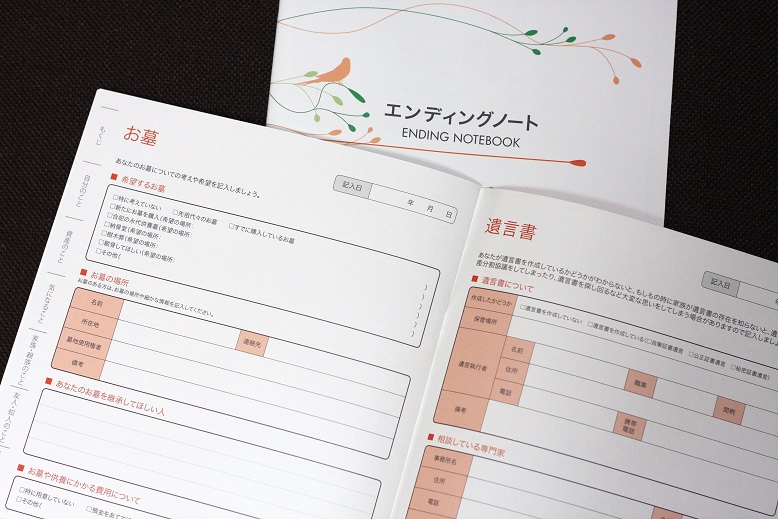 エンディングノート
ENDING NOTEBOOK
もくじ
自分のこと
資産のこと
気になること
家族・親族のこと
友人・知人のこと
お墓
あなたのお墓についての考えや希望を記入しましょう。
記入日 年 月 日
■ 希望するお墓
□特に考えていない □先祖代々のお墓 □すでに購入しているお墓
□新たにお墓を購入(希望の場所: )
□合祀の永代供養墓(希望の場所: )
□納骨堂(希望の場所: )
□樹木葬(希望の場所: )
□散骨してほしい(希望の場所: )
□その他( )
■ お墓の場所
お墓のある方は、お墓の場所や細かな情報を記入してください。
名前
所在地 連絡先
墓地使用権者
備考
■ あなたのお墓を継承してほしい人
■ お墓や供養にかかる費用について
□特に用意していない □預金をあてて
□その他(
遺言書
あなたが遺言書を作成しているかどうかがわからないと、もしもの時に家族が遺言書の存在を知らないと、遺
産分割協議をしてしまったり、遺言書を探し回るなど大変な思いをしてしまう場合がありますので記入しましょ
記入日 年
■ 遺言書について
作成したかどうか □遺言書を作成していない □遺言書を作成している(□自筆証書遺言 □公正証書遺言 □秘密証書遺言)
保管場所
遺言執行者
名前 職業 間柄
住所
電話 携帯電話
備考
■ 相談している専門家
事務所名
住所
電話